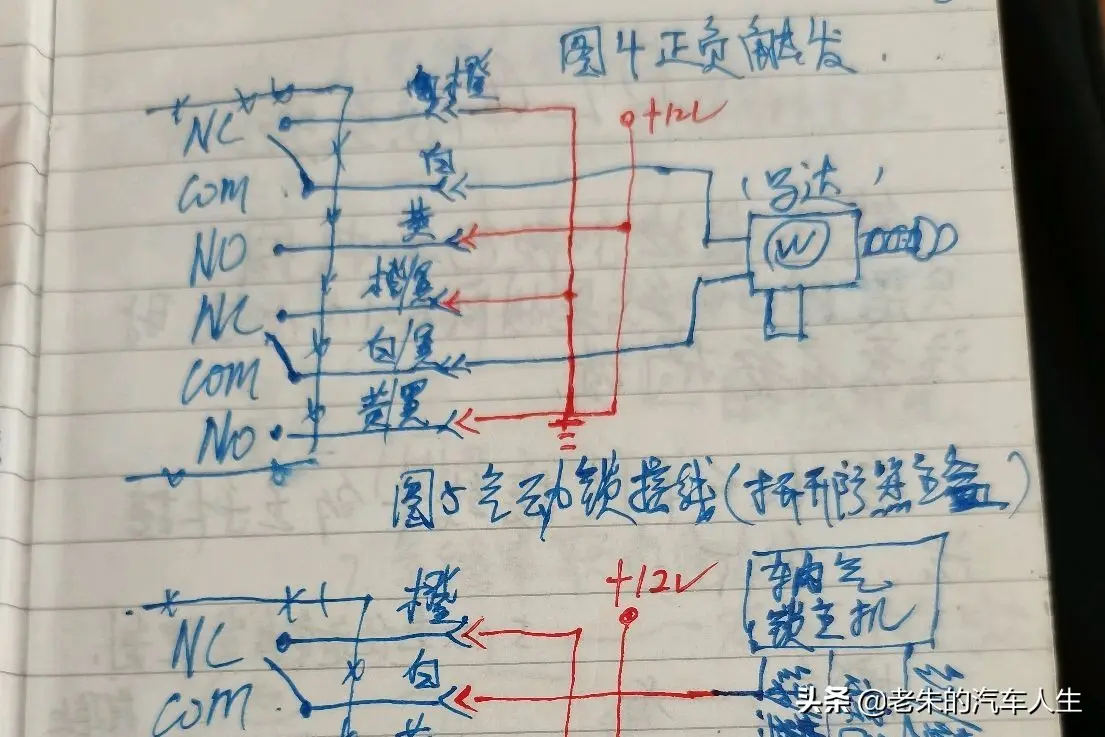 图4正负触发
橙
+12V
NC
白
COM
(马达)
黄
NO
M
橙/黑
NC
白/黑
COM
黄黑
NO
图5气动锁接线(
+12V
橙
气
锁主机
NC
白
COM
黄
头条@老朱的汽车人生